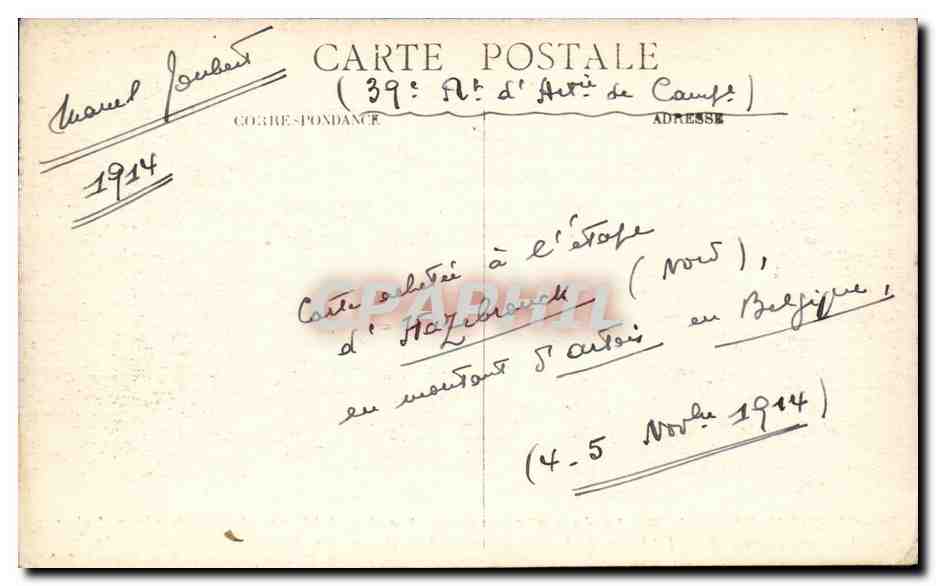 CARTE POSTALE
Marcel Joubert
(39e Rt d'Artie de Campe)
CORRESPONDANCE
ADRESSE
1914
Carte achetée à l'étape
d'Hazebrouck (Nord),
en montant d'Artois en Belgique,
(4-5 Novbre 1914)
CPAPHIL